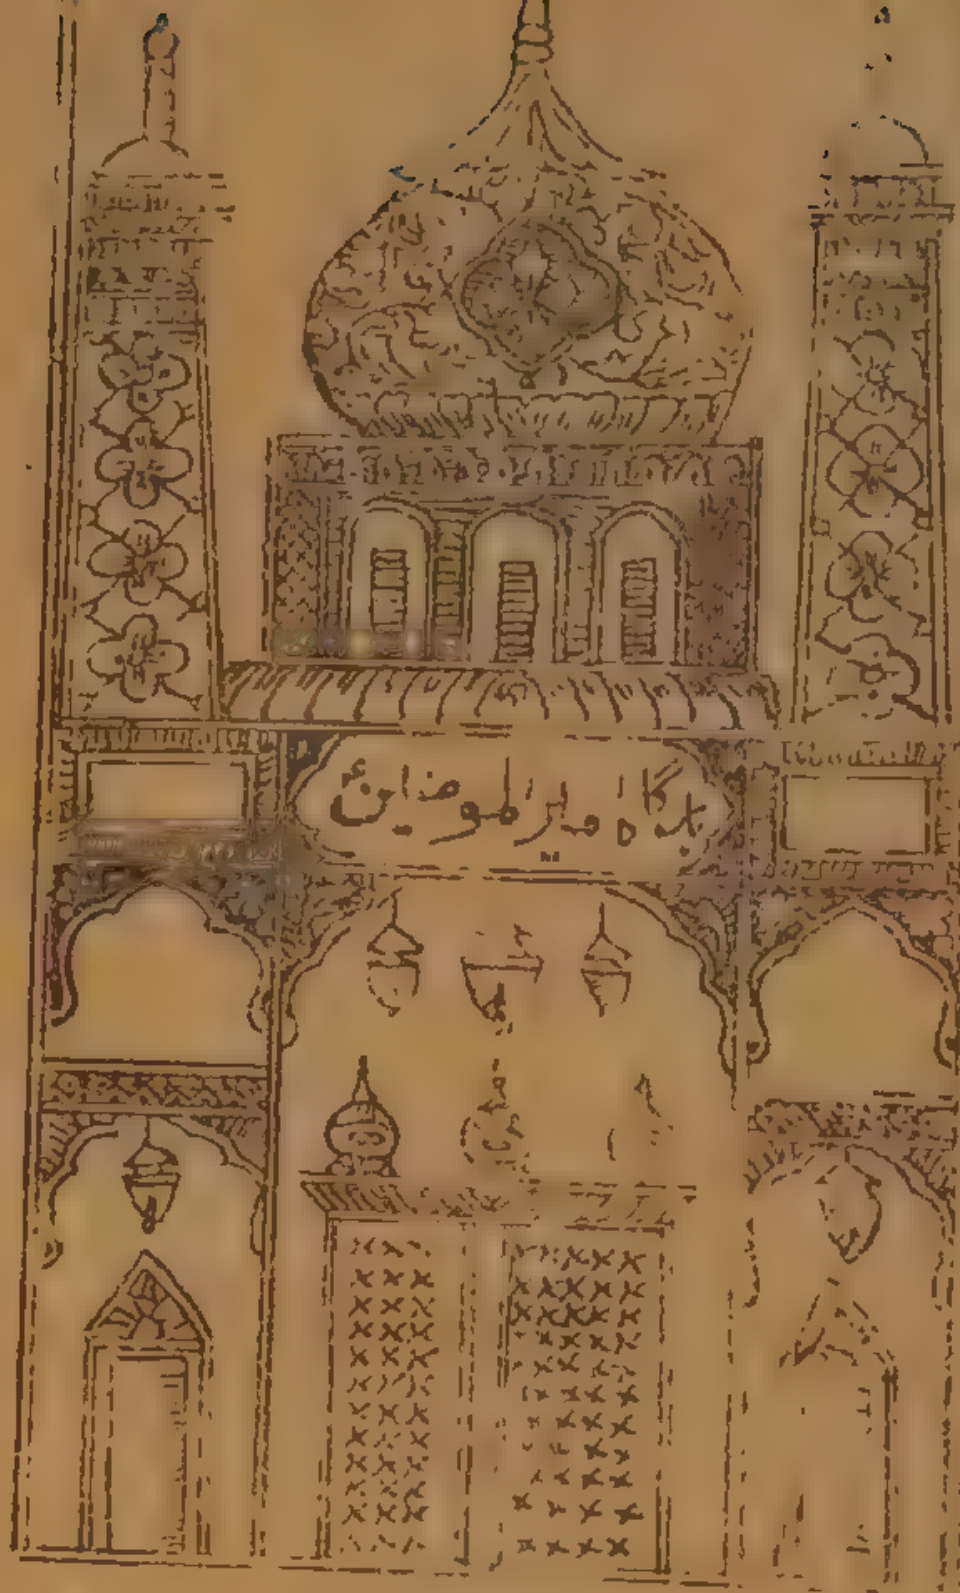 بارگاه امیرالمومنین